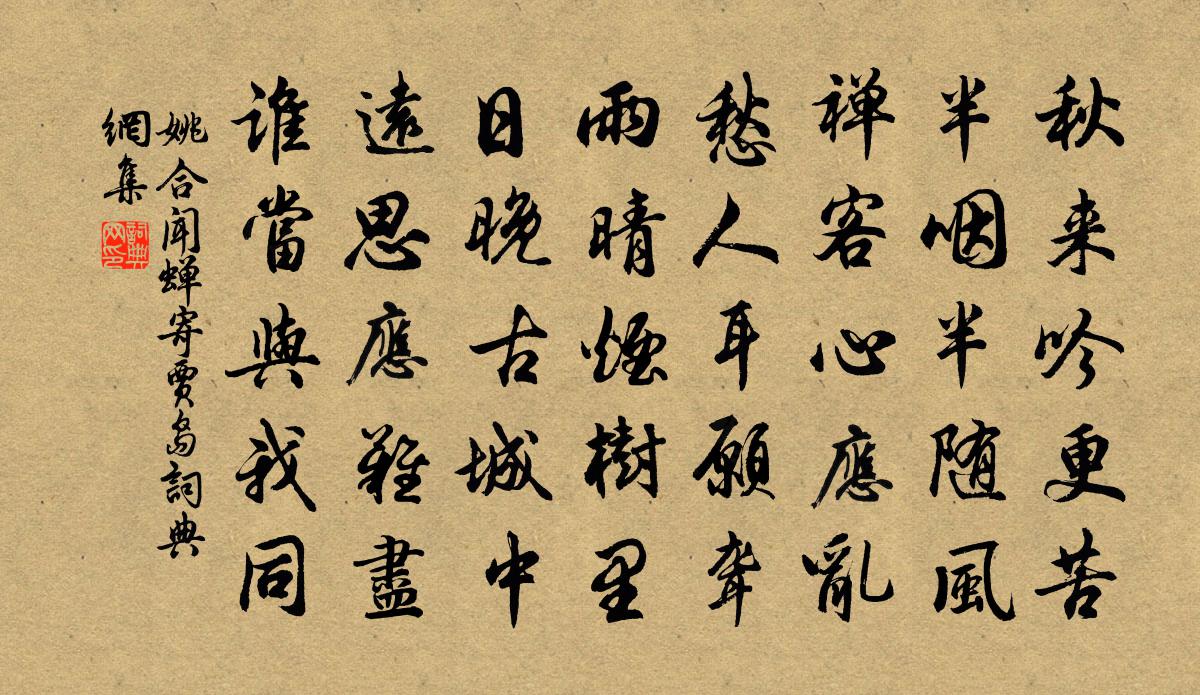 秋来吟更苦
半咽半随風
禅客心應亂
愁人耳願聾
雨晴煙樹里
日晚古城中
遠思應難盡
誰當與我同
姚合闻蝉寄賈島詞典
網集
詞典
网印